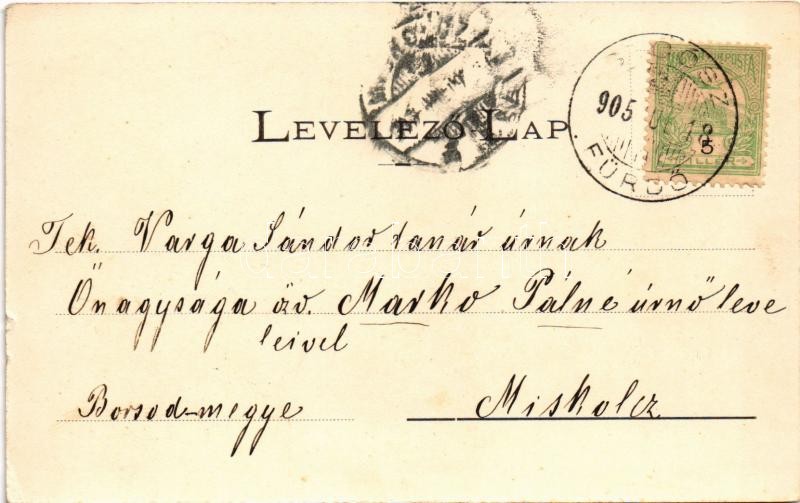 LEVELEZŐ-LAP.
905
18
FÜRDŐ
POSTA
5
Tek. Varga Sándor tanár úrnak
Őnagysága özv. Marko Pálné úrnő leve
leivel
Borsod-megye Miskolcz